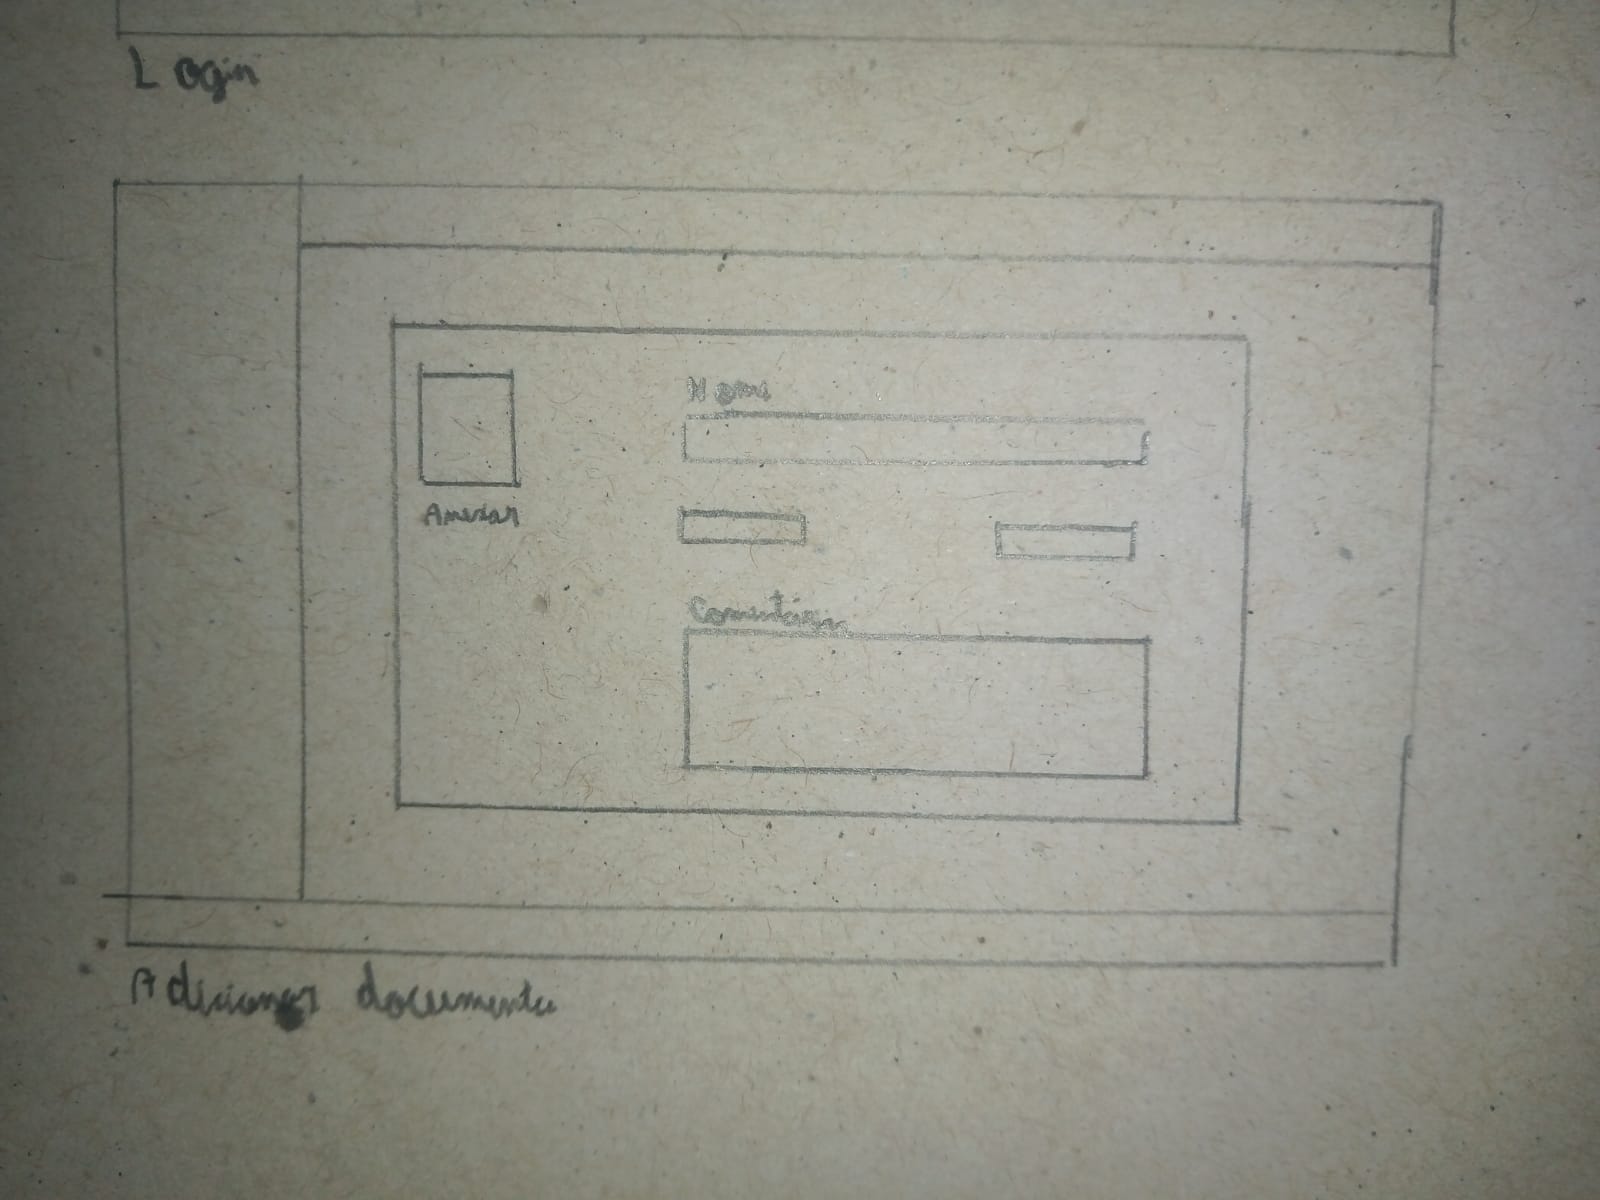 Login
Nome
Anexar
Comentário
Adicionar documento